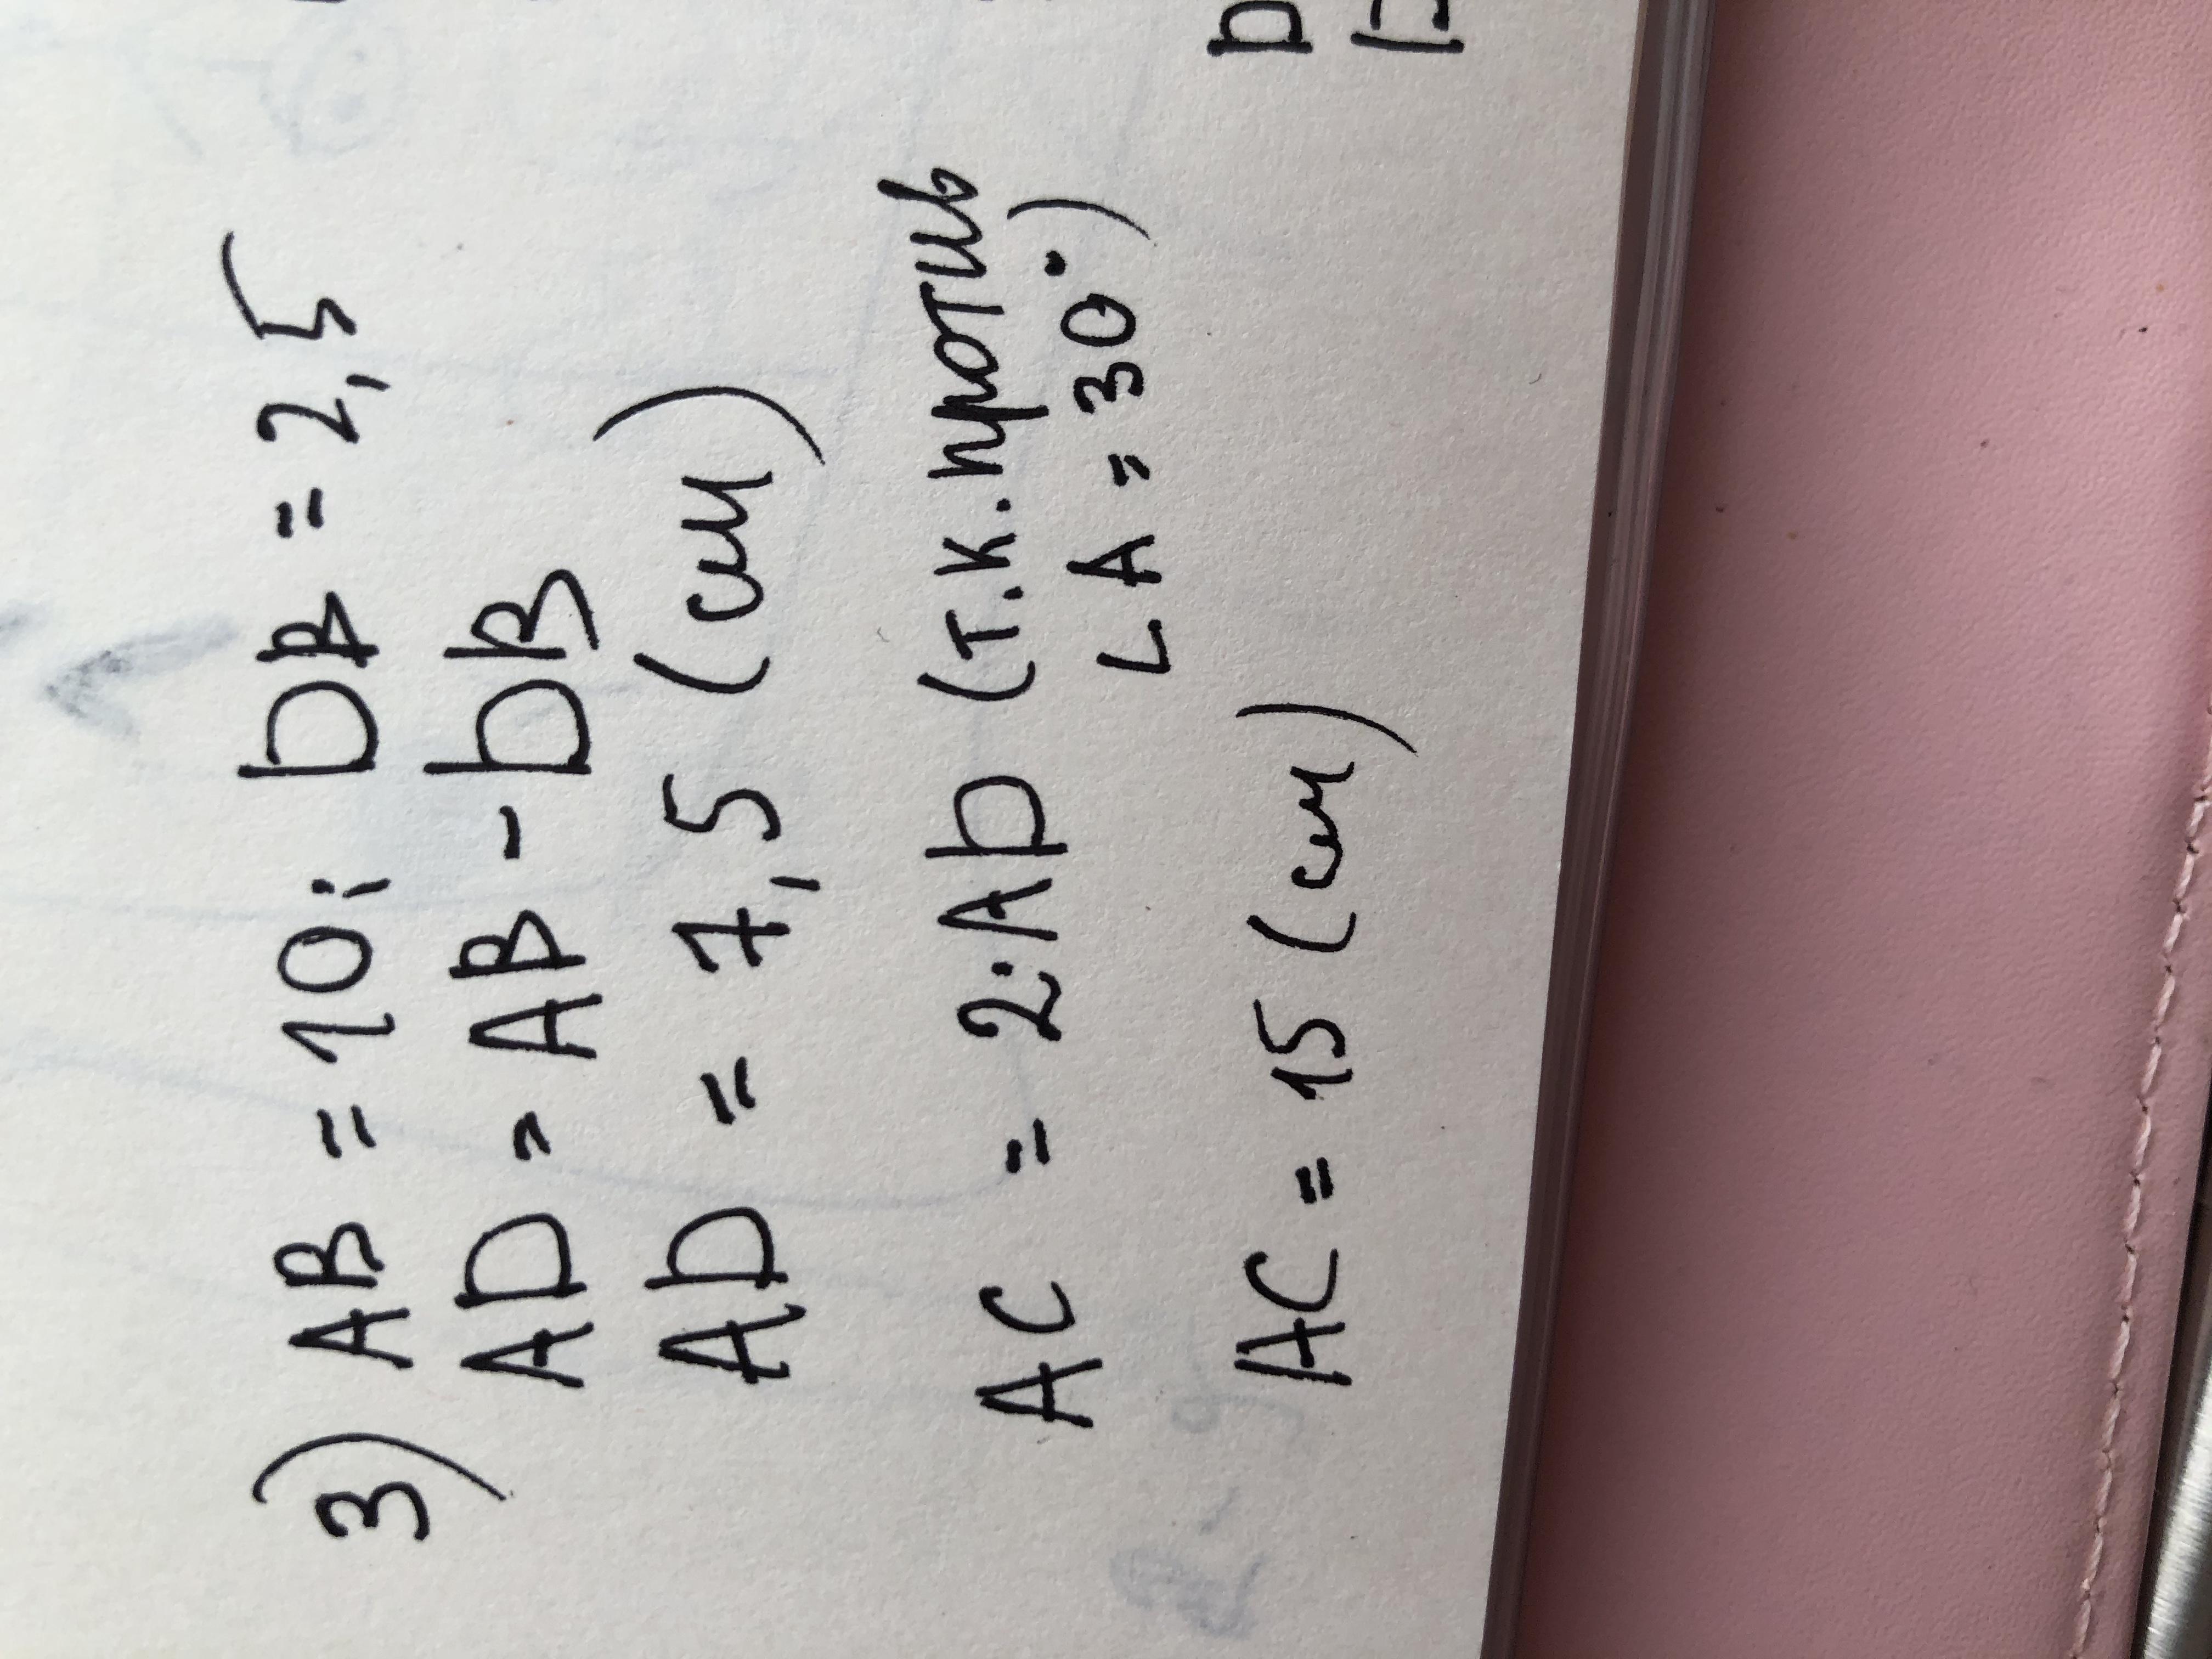 3) AB = 10; DB = 2,5
AD = AB - DB
AD = 7,5 (см)
AC = 2:AD (т.к. против
∟A = 30°)
AC = 15 (см)